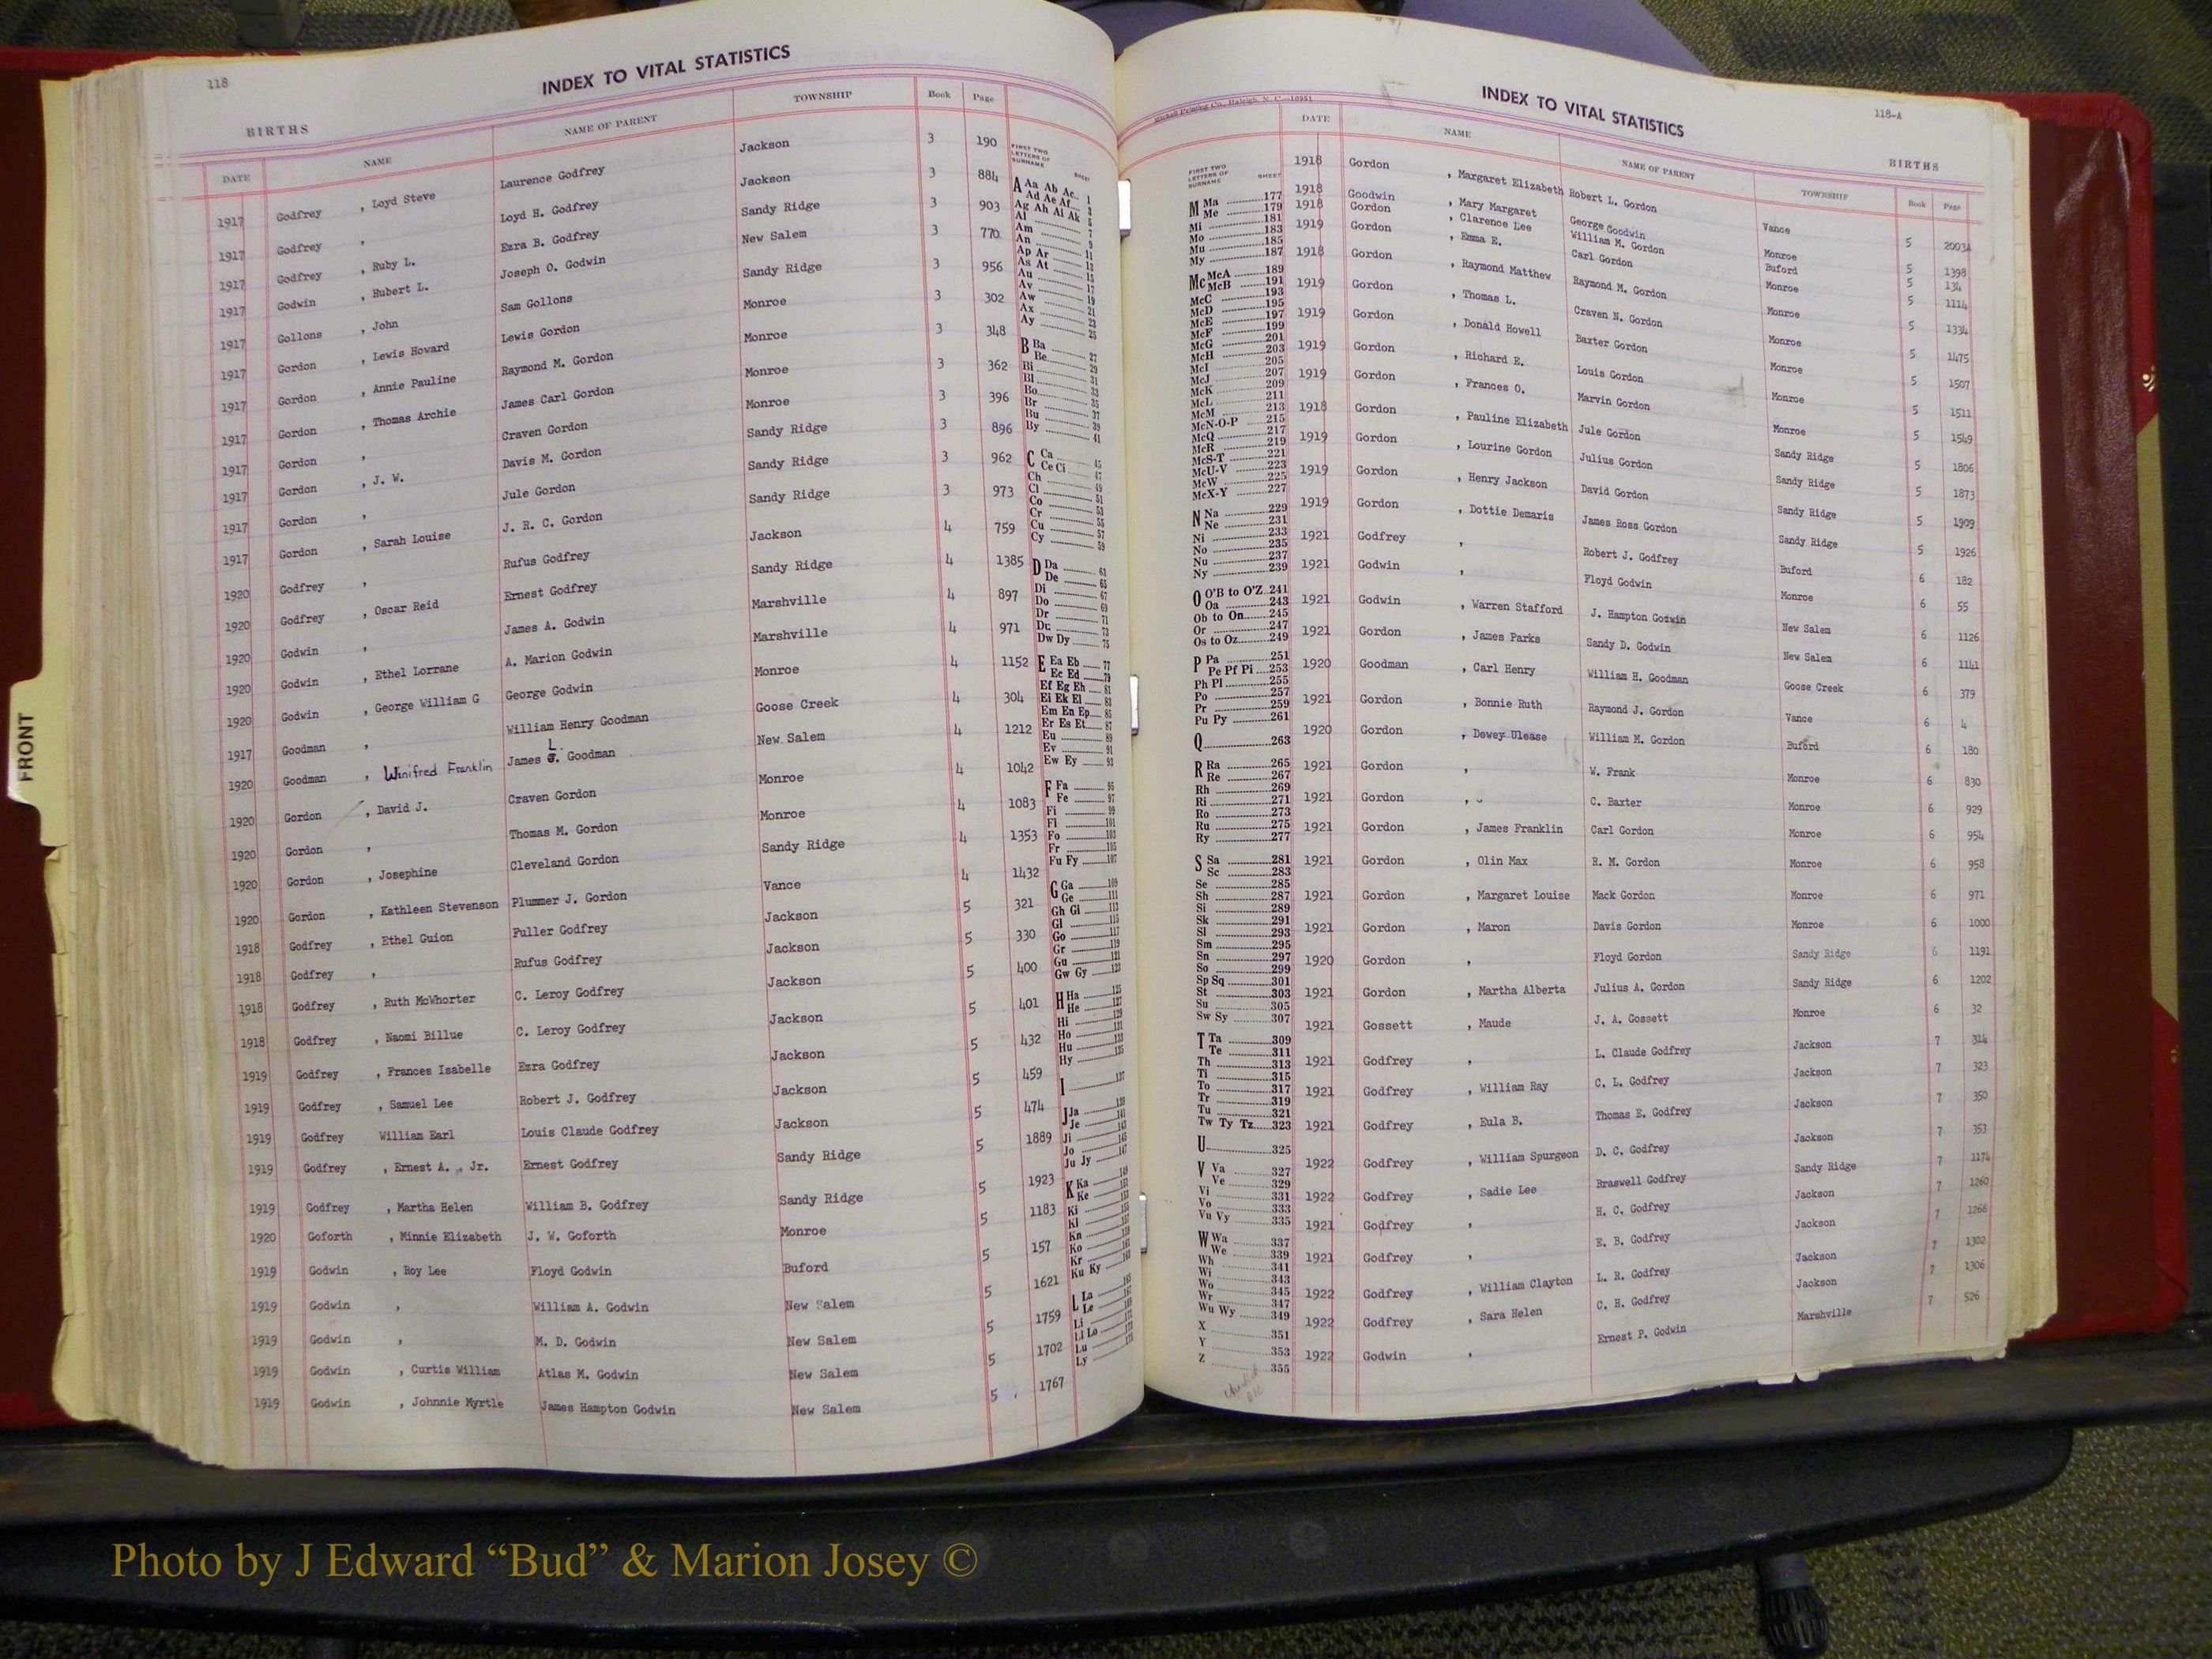 118
INDEX TO VITAL STATISTICS
BIRTHS
DATE NAME NAME OF PARENT TOWNSHIP Book Page
1917 Godfrey , Loyd Steve Laurence Godfrey Jackson 3 190
1917 Godfrey , Loyd H. Godfrey Jackson 3 884
1917 Godfrey , Ruby L. Ezra B. Godfrey Sandy Ridge 3 903
1917 Godwin , Hubert L. Joseph O. Godwin New Salem 3 770
1917 Gollons , John Sam Gollons Sandy Ridge 3 956
1917 Gordon , Lewis Howard Lewis Gordon Monroe 3 302
1917 Gordon , Annie Pauline Raymond M. Gordon Monroe 3 348
1917 Gordon , Thomas Archie James Carl Gordon Monroe 3 362
1917 Gordon , Craven Gordon Monroe 3 396
1917 Gordon , J. W. Davis M. Gordon Sandy Ridge 3 896
1917 Gordon , Jule Gordon Sandy Ridge 3 962
1917 Gordon , Sarah Louise J. R. C. Gordon Sandy Ridge 3 973
1920 Godfrey , Rufus Godfrey Jackson 4 759
1920 Godfrey , Oscar Reid Ernest Godfrey Sandy Ridge 4 1385
1920 Godwin , James A. Godwin Marshville 4 897
1920 Godwin , Ethel Lorrane A. Marion Godwin Marshville 4 971
1920 Godwin , George William G George Godwin Monroe 4 1152
1917 Goodman , William Henry Goodman Goose Creek 4 304
1920 Goodman , Winifred Franklin James L. Goodman New Salem 4 1212
1920 Gordon , David J. Craven Gordon Monroe 4 1042
1920 Gordon , Thomas M. Gordon Monroe 4 1083
1920 Gordon , Josephine Cleveland Gordon Sandy Ridge 4 1353
1920 Gordon , Kathleen Stevenson Plummer J. Gordon Vance 4 1432
1918 Godfrey , Ethel Guion Fuller Godfrey Jackson 5 321
1918 Godfrey , Rufus Godfrey Jackson 5 330
1918 Godfrey , Ruth McWhorter C. Leroy Godfrey Jackson 5 400
1918 Godfrey , Naomi Billue C. Leroy Godfrey Jackson 5 401
1919 Godfrey , Frances Isabelle Ezra Godfrey Jackson 5 432
1919 Godfrey , Samuel Lee Robert J. Godfrey Jackson 5 459
1919 Godfrey William Earl Louis Claude Godfrey Jackson 5 474
1919 Godfrey , Ernest A., Jr. Ernest Godfrey Sandy Ridge 5 1889
1919 Godfrey , Martha Helen William B. Godfrey Sandy Ridge 5 1923
1920 Goforth , Minnie Elizabeth J. W. Goforth Monroe 5 1183
1919 Godwin , Roy Lee Floyd Godwin Buford 5 157
1919 Godwin , William A. Godwin New Salem 5 1621
1919 Godwin , M. D. Godwin New Salem 5 1759
1919 Godwin , Curtis William Atlas M. Godwin New Salem 5 1702
1919 Godwin , Johnnie Myrtle James Hampton Godwin New Salem 5 1767
FIRST TWO LETTERS OF SURNAME SHEET
A Aa Ab Ac 1
Ad Ae Af 3
Ag Ah Ai Ak 5
Al 7
Am 9
An 11
Ap Ar 13
As At 15
Au 17
Av 19
Aw 21
Ax 23
Ay 25
B Ba 27
Be 29
Bi 31
Bl 33
Bo 35
Br 37
Bu 39
By 41
C Ca 45
Ce Ci 47
Ch 49
Cl 51
Co 53
Cr 55
Cu 57
Cy 59
D Da 61
De 65
Di 67
Do 69
Dr 71
Du 73
Dw Dy 75
E Ea Eb 77
Ec Ed 79
Ef Eg Eh 81
Ei Ek El 83
Em En Ep 85
Er Es Et 87
Eu 89
Ev 91
Ew Ey 93
F Fa 95
Fe 97
Fi 99
Fl 101
Fo 103
Fr 105
Fu Fy 107
G Ga 109
Ge 111
Gh Gi 113
Gl 115
Go 117
Gr 119
Gu 121
Gw Gy 123
H Ha 125
He 127
Hi 129
Ho 131
Hu 133
Hy 135
I 137
J Ja 139
Je 141
Ji 143
Jo 145
Ju Jy 147
K Ka 149
Ke 151
Ki
Kl
Kn
Ko
Kr
Ku Ky 163
L La 165
Le
Li
Ll Lo
Lu
Ly 173
118-A
INDEX TO VITAL STATISTICS
BIRTHS
Mitchell Printing Co., Raleigh, N. C.—10951
DATE NAME NAME OF PARENT TOWNSHIP Book Page
FIRST TWO LETTERS OF SURNAME SHEET
M Ma 177
Me 179
Mi 181
Mo 183
Mu 185
My 187
Mc McA 189
McB 191
McC 193
McD 195
McE 197
McF 199
McG 201
McH 203
McI 205
McJ 207
McK 209
McL 211
McM 213
McN-O-P 215
McQ 217
McR 219
McS-T 221
McU-V 223
McW 225
McX-Y 227
N Na 229
Ne 231
Ni 233
No 235
Nu 237
Ny 239
O O'B to O'Z 241
Oa 243
Ob to On 245
Or 247
Os to Oz 249
P Pa 251
Pe Pf Pi 253
Ph Pl 255
Po 257
Pr 259
Pu Py 261
Q 263
R Ra 265
Re 267
Rh 269
Ri 271
Ro 273
Ru 275
Ry 277
S Sa 281
Sc 283
Se 285
Sh 287
Si 289
Sk 291
Sl 293
Sm 295
Sn 297
So 299
Sp Sq 301
St 303
Su 305
Sw Sy 307
T Ta 309
Te 311
Th 313
Ti 315
To 317
Tr 319
Tu 321
Tw Ty Tz 323
U 325
V Va 327
Ve 329
Vi 331
Vo 333
Vu Vy 335
W Wa 337
We 339
Wh 341
Wi 343
Wo 345
Wr 347
Wu Wy 349
X 351
Y 353
Z 355
1918 Gordon , Margaret Elizabeth Robert L. Gordon Vance 5 2003A
1918 Goodwin , Mary Margaret George Goodwin Monroe 5 1398
1918 Gordon , Clarence Lee William M. Gordon Buford 5 134
1919 Gordon , Emma E. Carl Gordon Monroe 5 1114
1918 Gordon , Raymond Matthew Raymond M. Gordon Monroe 5 1334
1919 Gordon , Thomas L. Craven N. Gordon Monroe 5 1475
1919 Gordon , Donald Howell Baxter Gordon Monroe 5 1507
1919 Gordon , Richard E. Louis Gordon Monroe 5 1511
1919 Gordon , Frances O. Marvin Gordon Monroe 5 1549
1918 Gordon , Pauline Elizabeth Jule Gordon Sandy Ridge 5 1806
1919 Gordon , Lourine Gordon Julius Gordon Sandy Ridge 5 1873
1919 Gordon , Henry Jackson David Gordon Sandy Ridge 5 1909
1919 Gordon , Dottie Demaris James Ross Gordon Sandy Ridge 5 1926
1921 Godfrey , Robert J. Godfrey Buford 6 182
1921 Godwin , Floyd Godwin Monroe 6 55
1921 Godwin , Warren Stafford J. Hampton Godwin New Salem 6 1126
1921 Gordon , James Parks Sandy D. Godwin New Salem 6 1141
1920 Goodman , Carl Henry William H. Goodman Goose Creek 6 379
1921 Gordon , Bonnie Ruth Raymond J. Gordon Vance 6 4
1920 Gordon , Dewey Ulease William M. Gordon Buford 6 180
1921 Gordon , W. Frank Monroe 6 830
1921 Gordon , C. Baxter Monroe 6 929
1921 Gordon , James Franklin Carl Gordon Monroe 6 954
1921 Gordon , Olin Max R. M. Gordon Monroe 6 958
1921 Gordon , Margaret Louise Mack Gordon Monroe 6 971
1921 Gordon , Maron Davis Gordon Monroe 6 1000
1920 Gordon , Floyd Gordon Sandy Ridge 6 1191
1921 Gordon , Martha Alberta Julius A. Gordon Sandy Ridge 6 1202
1921 Gossett , Maude J. A. Gossett Monroe 6 32
1921 Godfrey , L. Claude Godfrey Jackson 7 314
1921 Godfrey , William Ray C. L. Godfrey Jackson 7 323
1921 Godfrey , Eula B. Thomas E. Godfrey Jackson 7 350
1922 Godfrey , William Spurgeon D. C. Godfrey Jackson 7 353
1922 Godfrey , Sadie Lee Braswell Godfrey Sandy Ridge 7 1174
1921 Godfrey , H. C. Godfrey Jackson 7 1260
1921 Godfrey , E. B. Godfrey Jackson 7 1266
1922 Godfrey , William Clayton L. R. Godfrey Jackson 7 1302
1922 Godfrey , Sara Helen C. H. Godfrey Jackson 7 1306
1922 Godwin , Ernest P. Godwin Marshville 7 526
FRONT
Photo by J Edward “Bud” & Marion Josey ©